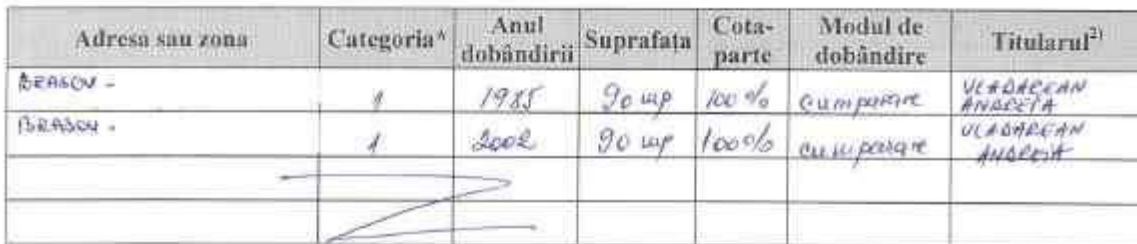 Adresa sau zona Categoria* Anul dobândirii Suprafața Cota-parte Modul de dobândire Titularul2)
BRASOV - 1 1985 90 mp 100% cumparare VLADAREAN ANDREIA
BRASOV - 1 2002 90 mp 100% cumparare VLADAREAN ANDREIA